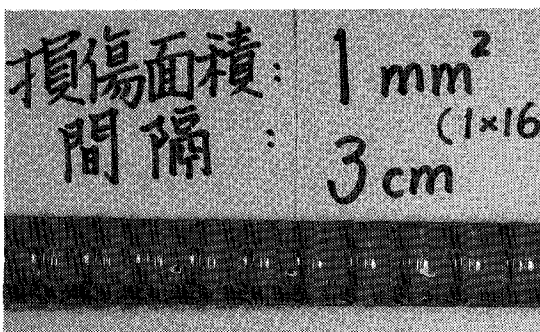 損傷面積: 1 mm²
(1×16
間隔: 3 cm